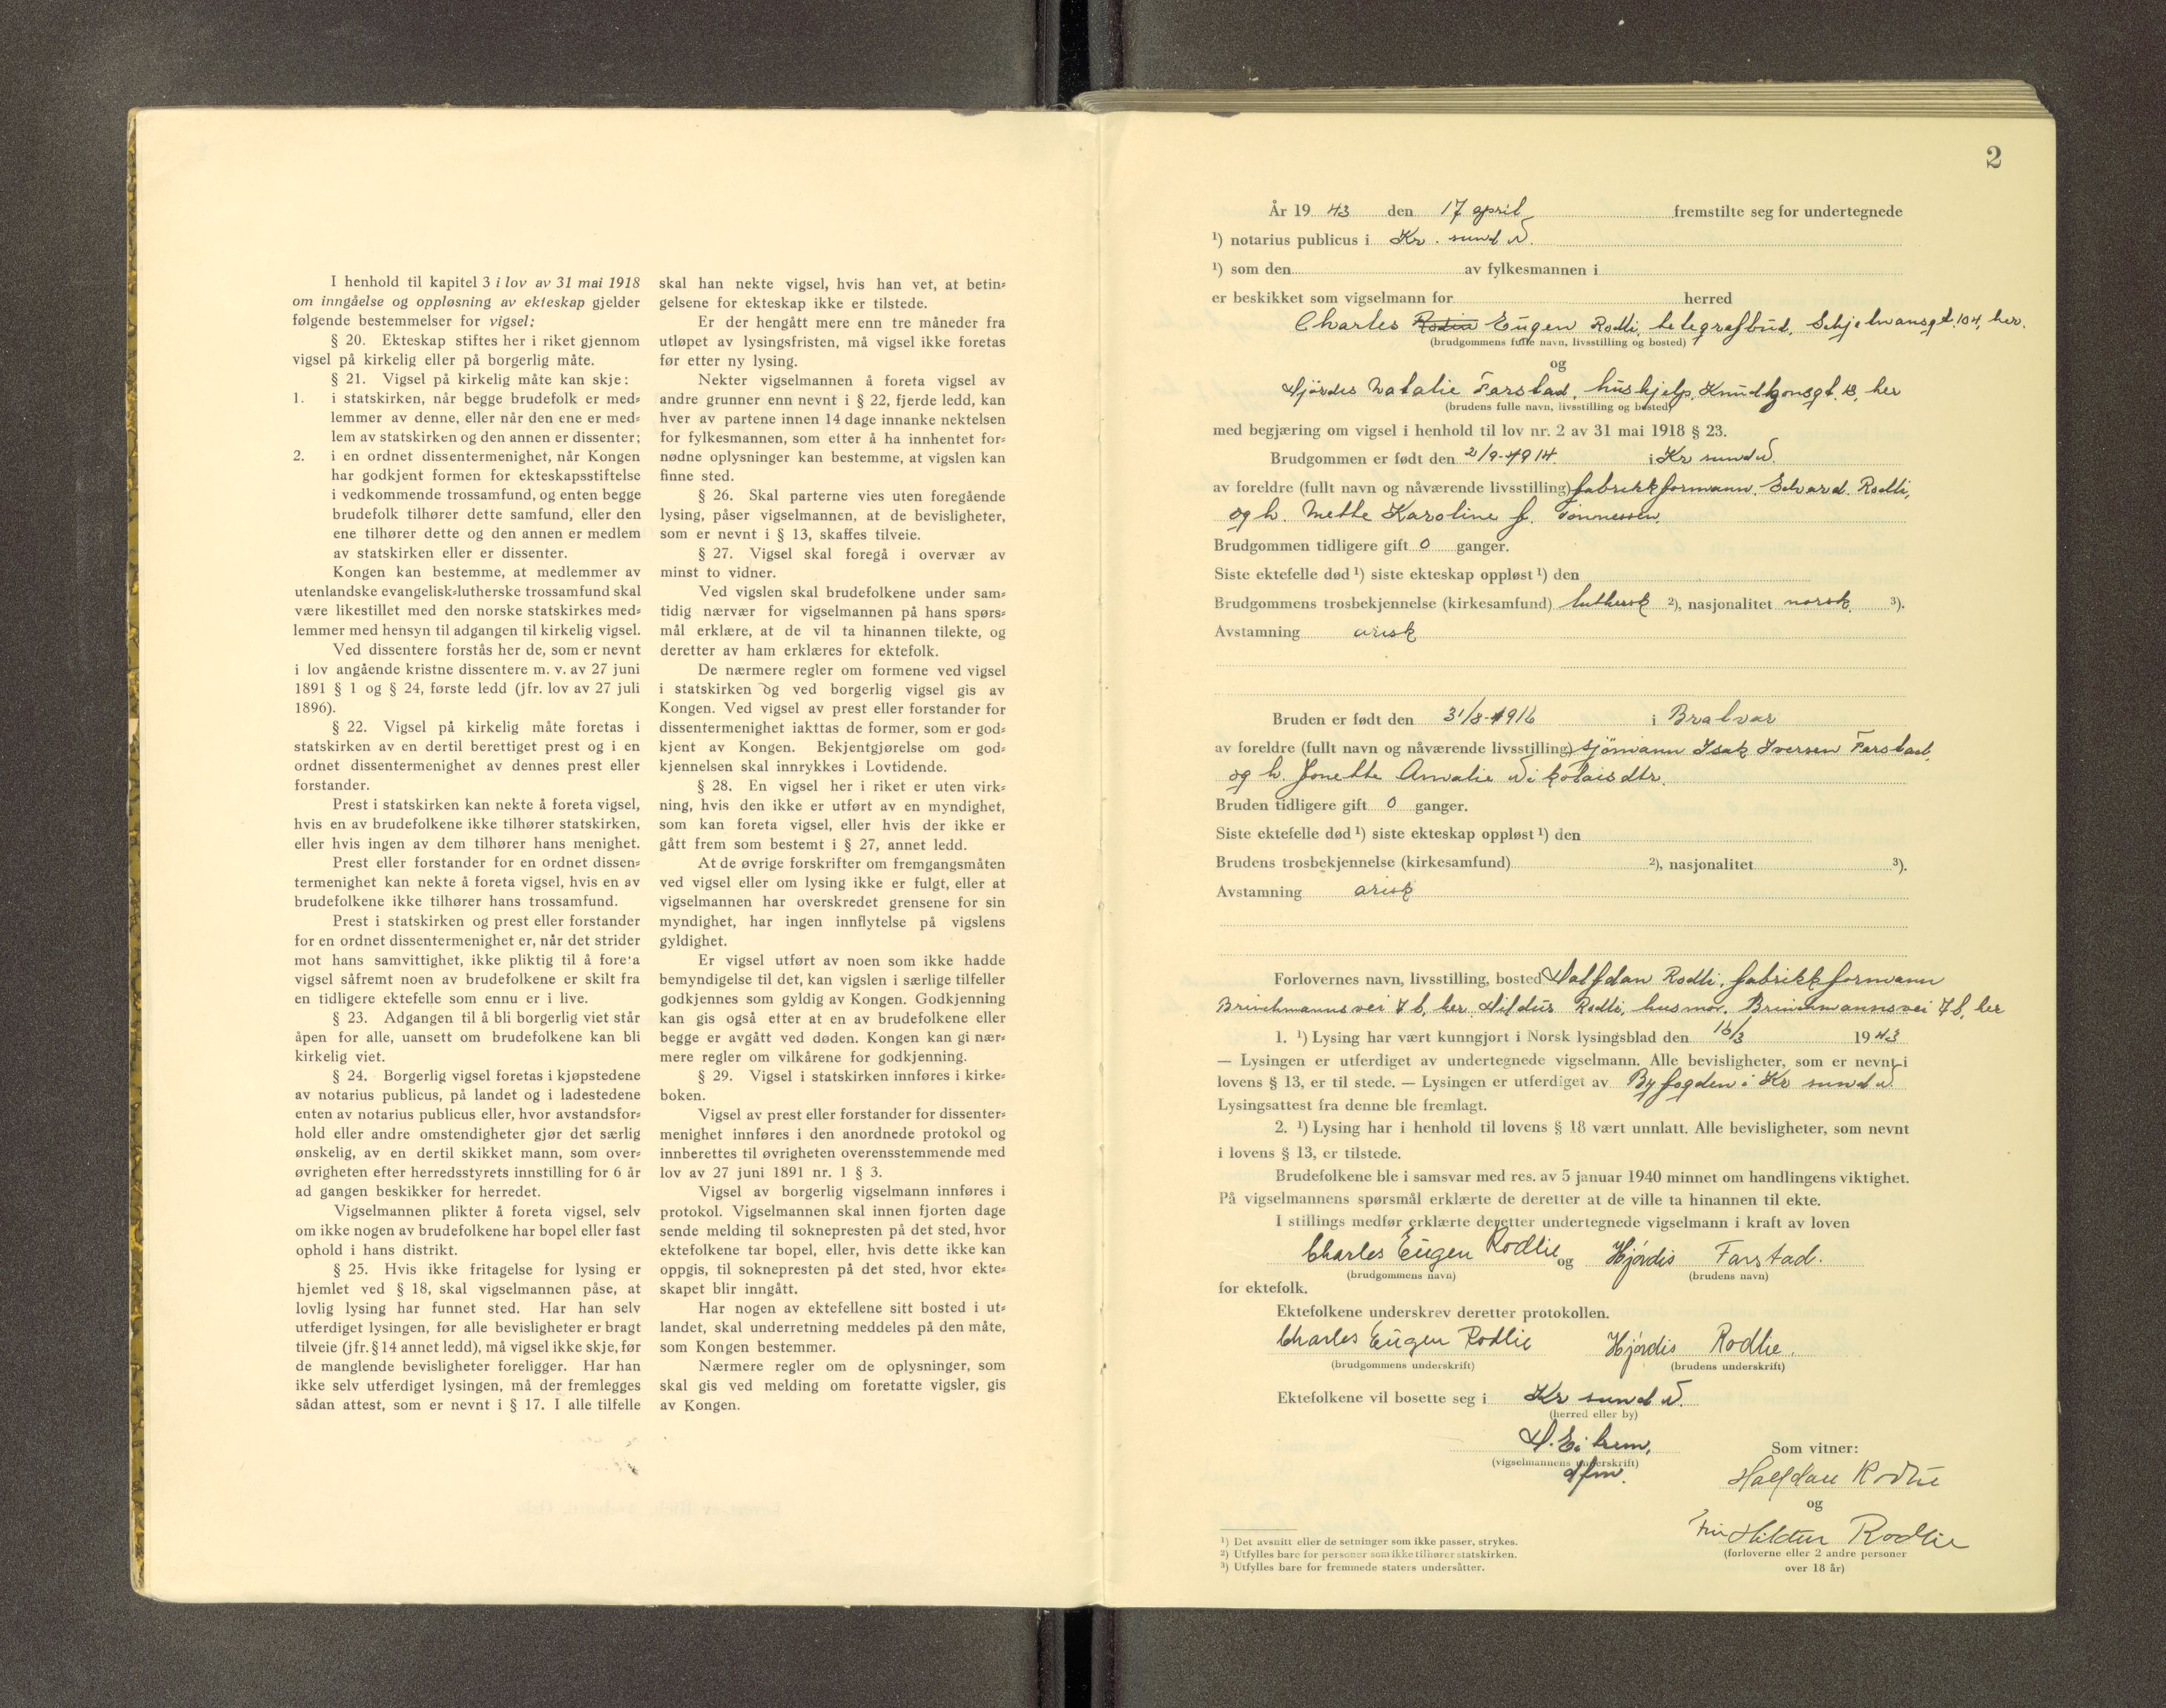 I henhold til kapitel 3 i lov av 31 mai 1918
om inngåelse og oppløsning av ekteskap gjelder
følgende bestemmelser for vigsel:
§ 20. Ekteskap stiftes her i riket gjennom
vigsel på kirkelig eller på borgerlig måte.
§ 21. Vigsel på kirkelig måte kan skje:
1. i statskirken, når begge brudefolk er med-
lemmer av denne, eller når den ene er med-
lem av statskirken og den annen er dissenter;
2. i en ordnet dissentermenighet, når Kongen
har godkjent formen for ekteskapsstiftelse
i vedkommende trossamfund, og enten begge
brudefolk tilhører dette samfund, eller den
ene tilhører dette og den annen er medlem
av statskirken eller er dissenter.
Kongen kan bestemme, at medlemmer av
utenlandske evangelisk-lutherske trossamfund skal
være likestillet med den norske statskirkes med-
lemmer med hensyn til adgangen til kirkelig vigsel.
Ved dissentere forstås her de, som er nevnt
i lov angående kristne dissentere m. v. av 27 juni
1891 § 1 og § 24, første ledd (jfr. lov av 27 juli
1896).
§ 22. Vigsel på kirkelig måte foretas i
statskirken av en dertil berettiget prest og i en
ordnet dissentermenighet av dennes prest eller
forstander.
Prest i statskirken kan nekte å foreta vigsel,
hvis en av brudefolkene ikke tilhører statskirken,
eller hvis ingen av dem tilhører hans menighet.
Prest eller forstander for en ordnet dissen-
termenighet kan nekte å foreta vigsel, hvis en av
brudefolkene ikke tilhører hans trossamfund.
Prest i statskirken og prest eller forstander
for en ordnet dissentermenighet er, når det strider
mot hans samvittighet, ikke pliktig til å foreta
vigsel såfremt noen av brudefolkene er skilt fra
en tidligere ektefelle som ennu er i live.
§ 23. Adgangen til å bli borgerlig viet står
åpen for alle, uansett om brudefolkene kan bli
kirkelig viet.
§ 24. Borgerlig vigsel foretas i kjøpstedene
av notarius publicus, på landet og i ladestedene
enten av notarius publicus eller, hvor avstandsfor-
hold eller andre omstendigheter gjør det særlig
ønskelig, av en dertil skikket mann, som over-
øvrigheten efter herredsstyrets innstilling for 6 år
ad gangen beskikker for herredet.
Vigselmannen plikter å foreta vigsel, selv
om ikke nogen av brudefolkene har bopel eller fast
ophold i hans distrikt.
§ 25. Hvis ikke fritagelse for lysing er
hjemlet ved § 18, skal vigselmannen påse, at
lovlig lysing har funnet sted. Har han selv
utferdiget lysingen, før alle bevisligheter er bragt
tilveie (jfr. § 14 annet ledd), må vigsel ikke skje, før
de manglende bevisligheter foreligger. Har han
ikke selv utferdiget lysingen, må der fremlegges
sådan attest, som er nevnt i § 17. I alle tilfelle
skal han nekte vigsel, hvis han vet, at betin-
gelsene for ekteskap ikke er tilstede.
Er der hengått mere enn tre måneder fra
utløpet av lysingsfristen, må vigsel ikke foretas
før etter ny lysing.
Nekter vigselmannen å foreta vigsel av
andre grunner enn nevnt i § 22, fjerde ledd, kan
hver av partene innen 14 dage innanke nektelsen
for fylkesmannen, som etter å ha innhentet for-
nødne oplysninger kan bestemme, at vigslen kan
finne sted.
§ 26. Skal parterne vies uten foregående
lysing, påser vigselmannen, at de bevisligheter,
som er nevnt i § 13, skaffes tilveie.
§ 27. Vigsel skal foregå i overvær av
minst to vidner.
Ved vigslen skal brudefolkene under sam-
tidig nærvær for vigselmannen på hans spørs-
mål erklære, at de vil ta hinannen tilekte, og
deretter av ham erklæres for ektefolk.
De nærmere regler om formene ved vigsel
i statskirken og ved borgerlig vigsel gis av
Kongen. Ved vigsel av prest eller forstander for
dissentermenighet iakttas de former, som er god-
kjent av Kongen. Bekjentgjørelse om god-
kjennelsen skal innrykkes i Lovtidende.
§ 28. En vigsel her i riket er uten virk-
ning, hvis den ikke er utført av en myndighet,
som kan foreta vigsel, eller hvis der ikke er
gått frem som bestemt i § 27, annet ledd.
At de øvrige forskrifter om fremgangsmåten
ved vigsel eller om lysing ikke er fulgt, eller at
vigselmannen har overskredet grensene for sin
myndighet, har ingen innflytelse på vigslens
gyldighet.
Er vigsel utført av noen som ikke hadde
bemyndigelse til det, kan vigslen i særlige tilfeller
godkjennes som gyldig av Kongen. Godkjenning
kan gis også etter at en av brudefolkene eller
begge er avgått ved døden. Kongen kan gi nær-
mere regler om vilkårene for godkjenning.
§ 29. Vigsel i statskirken innføres i kirke-
boken.
Vigsel av prest eller forstander for dissenter-
menighet innføres i den anordnede protokol og
innberettes til øvrigheten overensstemmende med
lov av 27 juni 1891 nr. 1 § 3.
Vigsel av borgerlig vigselmann innføres i
protokol. Vigselmannen skal innen fjorten dage
sende melding til soknepresten på det sted, hvor
ektefolkene tar bopel, eller, hvis dette ikke kan
oppgis, til soknepresten på det sted, hvor ekte-
skapet blir inngått.
Har nogen av ektefellene sitt bosted i ut-
landet, skal underretning meddeles på den måte,
som Kongen bestemmer.
Nærmere regler om de oplysninger, som
skal gis ved melding om foretatte vigsler, gis
av Kongen.
2
År 19 43 den 17 april fremstilte seg for undertegnede
¹) notarius publicus i Kr. sund N.
¹) som den av fylkesmannen i
er beskikket som vigselmann for herred
Charles Eugen Rodli, telegrafbud, Schjelwansgt. 104, her.
(brudgommens fulle navn, livsstilling og bosted)
og
Hjördes Natalie Farstad, hushjelp, Knudtzonsgt. 13, her
(brudens fulle navn, livsstilling og bosted)
med begjæring om vigsel i henhold til lov nr. 2 av 31 mai 1918 § 23.
Brudgommen er født den 2/9-1914. i Kr sund N.
av foreldre (fullt navn og nåværende livsstilling) fabrikkformann, Edvard Rodli,
og h. Mette Karoline f. Tönnessen.
Brudgommen tidligere gift 0 ganger.
Siste ektefelle død ¹) siste ekteskap oppløst ¹) den
Brudgommens trosbekjennelse (kirkesamfund) luthersk ²), nasjonalitet norsk. ³).
Avstamning arisk
Bruden er født den 31/8-1916 i Bratvær
av foreldre (fullt navn og nåværende livsstilling) sjömann Isak Iversen Farstad,
og h. Jonette Amalie Nikolaisdtr.
Bruden tidligere gift 0 ganger.
Siste ektefelle død ¹) siste ekteskap oppløst ¹) den
Brudens trosbekjennelse (kirkesamfund) ²), nasjonalitet ³).
Avstamning arisk
Forlovernes navn, livsstilling, bosted Halfdan Rodli, fabrikkformann
Brinchmannsvei 7 b, her. Hildur Rodli, husmor, Brinchmannsvei 7 b, her
1. ¹) Lysing har vært kunngjort i Norsk lysingsblad den 16/3 1943
— Lysingen er utferdiget av undertegnede vigselmann. Alle bevisligheter, som er nevnt i
lovens § 13, er til stede. — Lysingen er utferdiget av Byfogden i Kr sund N.
Lysingsattest fra denne ble fremlagt.
2. ¹) Lysing har i henhold til lovens § 18 vært unnlatt. Alle bevisligheter, som nevnt
i lovens § 13, er tilstede.
Brudefolkene ble i samsvar med res. av 5 januar 1940 minnet om handlingens viktighet.
På vigselmannens spørsmål erklærte de deretter at de ville ta hinannen til ekte.
I stillings medfør erklærte deretter undertegnede vigselmann i kraft av loven
Charles Eugen Rodlie og Hjørdis Farstad.
(brudgommens navn) (brudens navn)
for ektefolk.
Ektefolkene underskrev deretter protokollen.
Charles Eugen Rodlie Hjørdis Rodlie.
(brudgommens underskrift) (brudens underskrift)
Ektefolkene vil bosette seg i Kr sund N.
(herred eller by)
H. Eikrem,
(vigselmannens underskrift)
dfm.
Som vitner:
Halfdan Rodlie
og
Fru Hildur Rodlie
(forloverne eller 2 andre personer
over 18 år)
¹) Det avsnitt eller de setninger som ikke passer, strykes.
²) Utfylles bare for personer som ikke tilhører statskirken.
³) Utfylles bare for fremmede staters undersåtter.